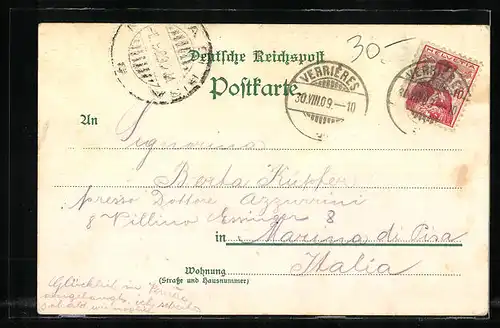 30-
Deutsche Reichspost
Postkarte
VERRIÈRES
30.VIII.09.-10
HELVETIA
VERRIÈRES
10
An
Signorina
Berta Küpfer
presso Dottore Azzurrini
8 Villino Essinger 8
in Marina di Pisa
Italia
Wohnung
(Straße und Hausnummer)
Glücklich in